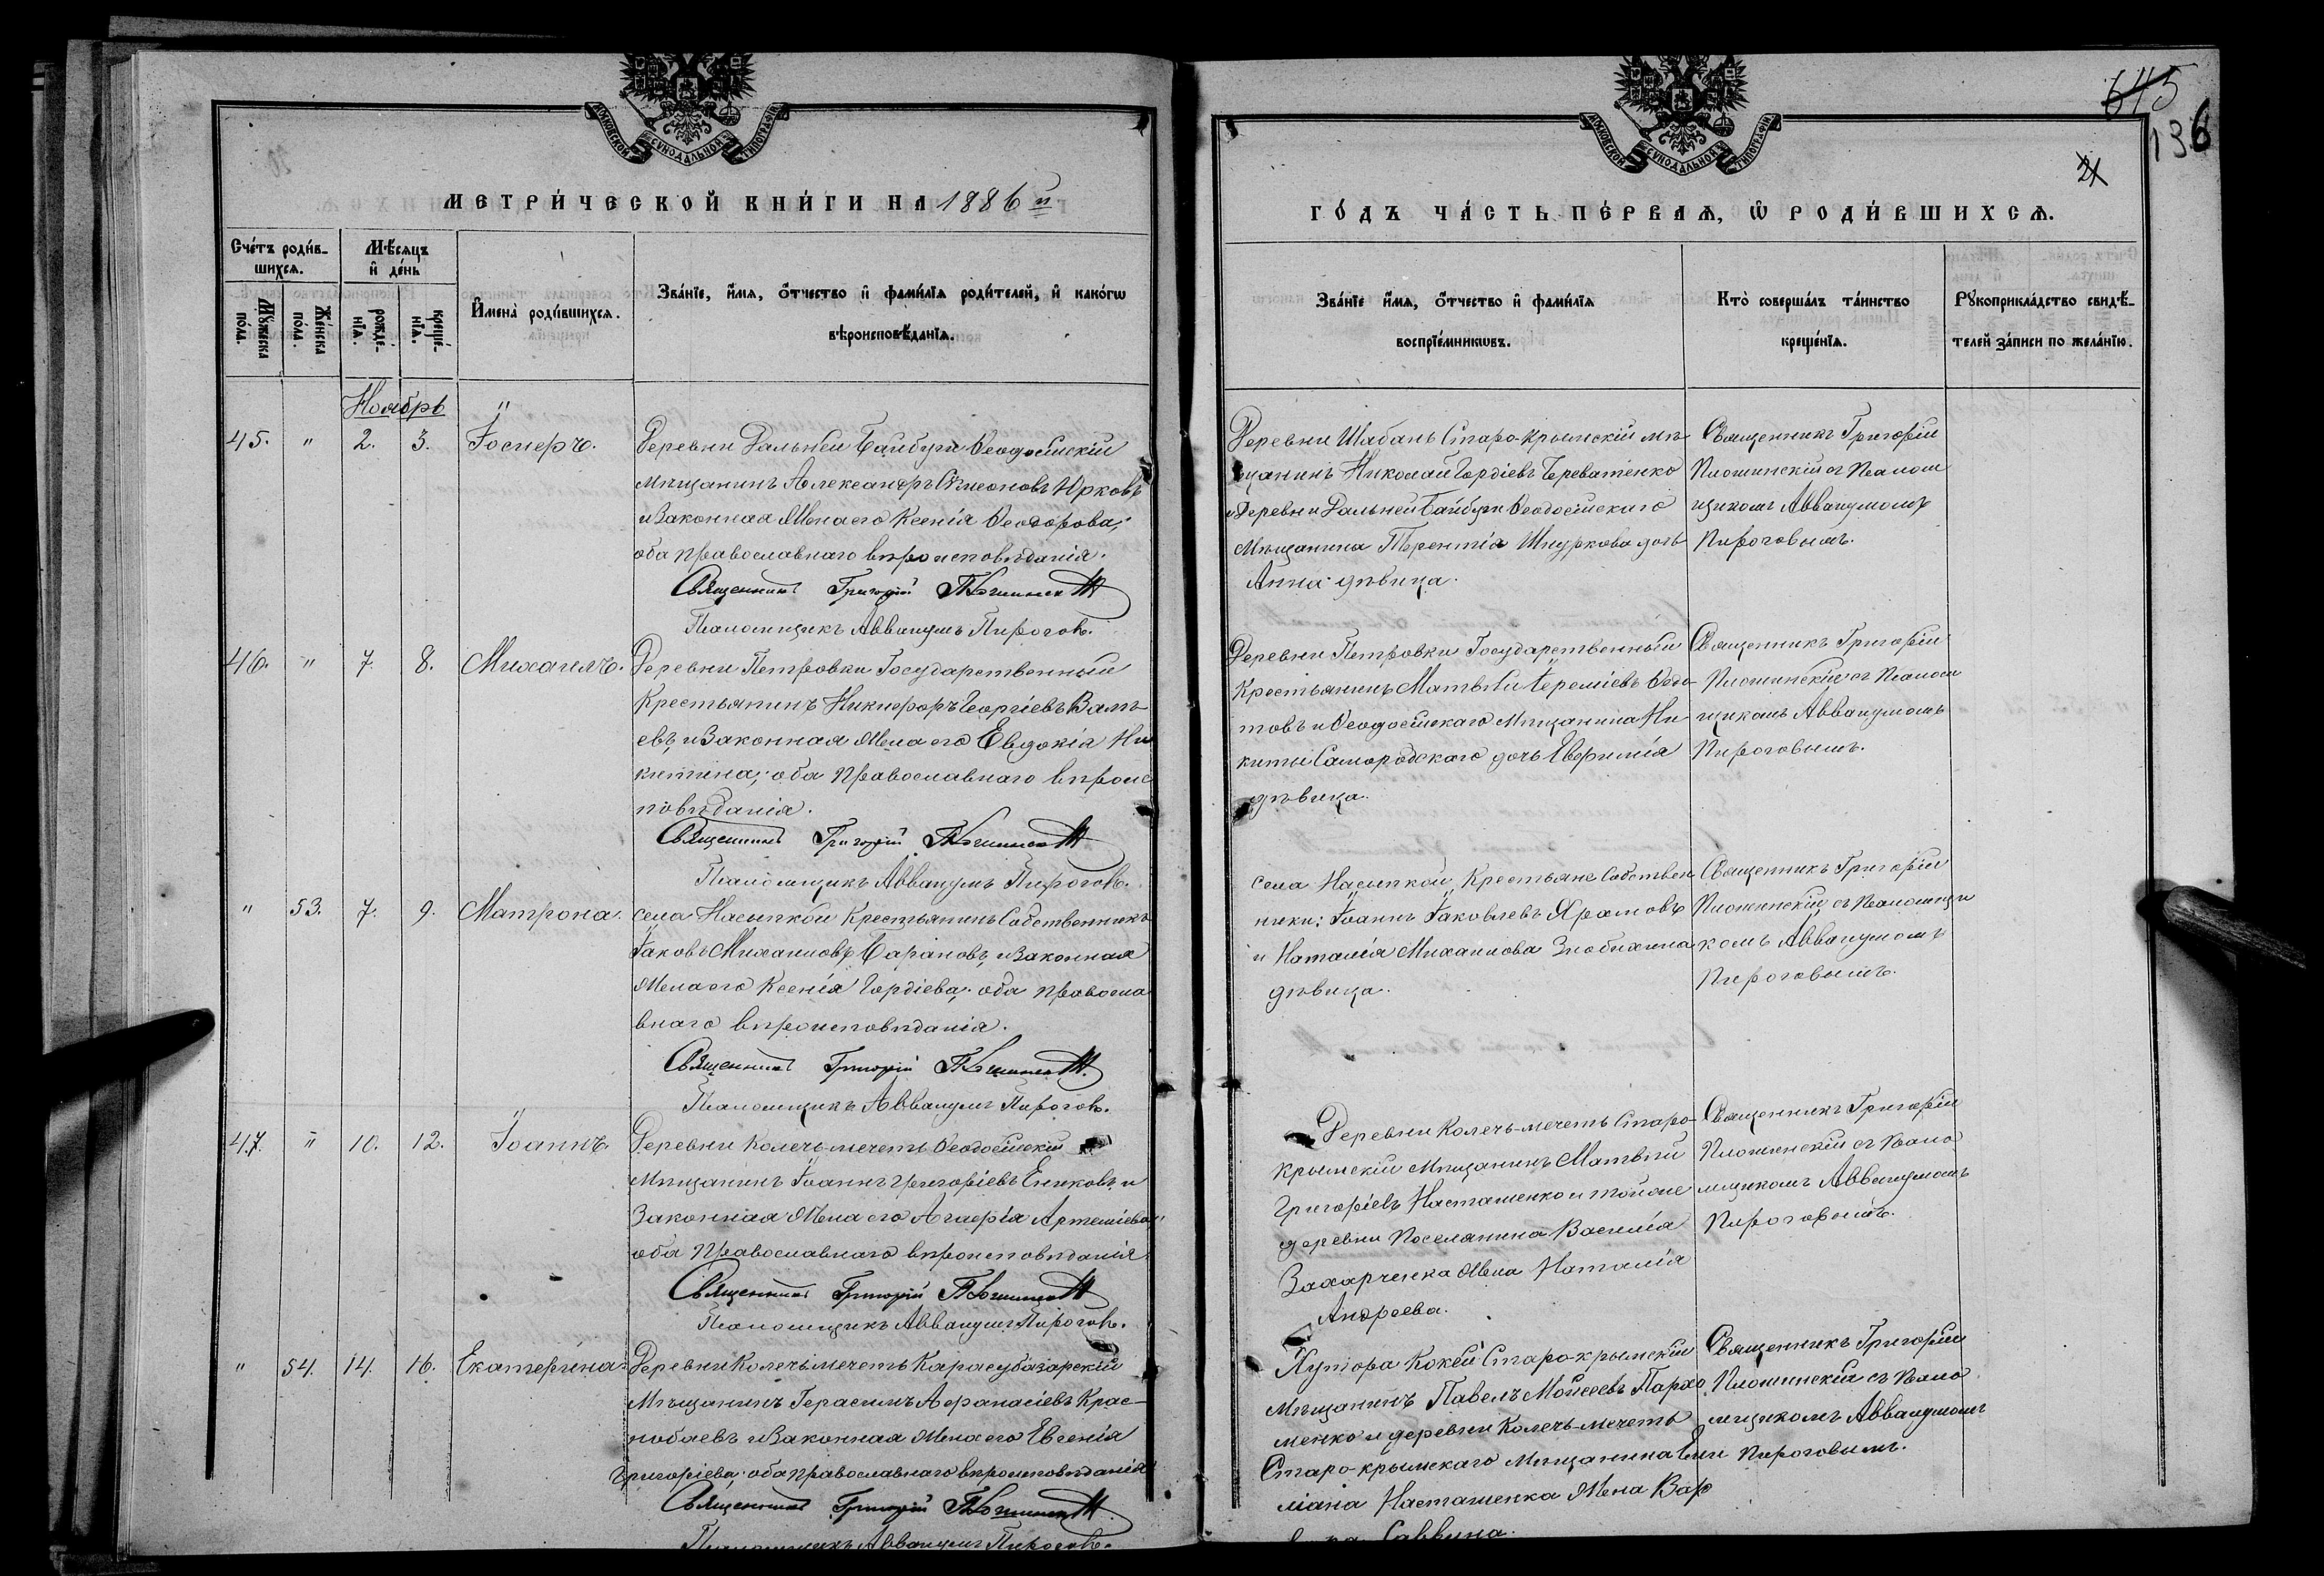 МОСКОВСКОЙ СѴНОДАЛЬНОЙ ТИПОГРАФІИ
МЕТРИ́ЧЕСКОЙ КНИ́ГИ НА 1886 й
Сче́тъ роди́в-
шихсѧ.
Мѣ́сѧцъ
и҆ де́нь
Мꙋ́жеска
по́ла.
Же́нска
по́ла.
рожде́-
нїѧ.
креще́-
нїѧ.
И҆мена̀ роди́вшихсѧ.
Зва́нїе, и҆́мѧ, ѻ҆́тчество и҆ фами́лїѧ роди́телей, и҆ како́гѡ
вѣроисповѣ́данїѧ.
Ноябрь
45. " 2. 3. Іосифъ.
Деревни Дальней Байбуги Ѳеодосійскій
мѣщанинъ Александръ Симеоновъ Юрковъ
и законная жена его Ксенія Ѳеодорова;
оба православнаго вѣроисповѣданія.
Священникъ Григорій
Псаломщикъ Аввакумъ Пироговъ.
46. " 7. 8. Михаилъ.
Деревни Петровки Государственный
Крестьянинъ Никифоръ Георгіевъ
евъ и законная жена его Евдокія Ни
китина; оба православнаго вѣроис
повѣданія.
Священникъ Григорій
Псаломщикъ Аввакумъ Пироговъ.
" 53. 7. 9. Матрона.
села Насыпкой Крестьянинъ Собственникъ
Іаковъ Михаиловъ Барановъ и законная
жена его Ксенія Гордіева; оба православ
внаго вѣроисповѣданія.
Священникъ Григорій
Псаломщикъ Аввакумъ Пироговъ.
47. " 10. 12. Іоаннъ.
Деревни Колечь-мечеть Ѳеодосійскій
мѣщанинъ Іоаннъ Григоріевъ Ениковъ и
законная жена его Артеміева
оба православнаго вѣроисповѣданія
Священникъ Григорій
Псаломщикъ Аввакумъ Пироговъ.
" 54. 14. 16. Екатерина.
Деревни Колечь мечеть Карасубазарскій
мѣщанинъ Герасимъ Аѳанасіевъ Крас-
нобаевъ и законная жена его Евгенія
Григоріева; оба православнаго вѣроисповѣданія
Священникъ Григорій
Псаломщикъ Аввакумъ Пироговъ.
МОСКОВСКОЙ СѴНОДАЛЬНОЙ ТИПОГРАФІИ
645
136
21
ГО́ДЪ ЧА́СТЬ ПЕ́РВАѦ, Ѡ҆ РОДИ́ВШИХСѦ.
Зва́нїе и҆́мѧ, ѻ҆́тчество и҆ фами́лїѧ
воспрїе́мникѡвъ.
Кто̀ соверша́лъ та́инство
креще́нїѧ.
Рꙋкоприкла́дство свидѣ́-
телей за́писи по жела́нїю.
Деревни Шабань Старо-Крымскій мѣ
щанинъ Николай Гордіевъ Череватенко
и деревни Дальней Байбуги Ѳеодосійскаго
мѣщанина Терентія Шнуркова дочь
Анна дѣвица.
Священникъ Григорій
съ Псалом
щикомъ Аввакумомъ
Пироговымъ.
Деревни Петровки Государственный
Крестьянинъ Матвѣй Іереміевъ Ѳедо
товъ и Ѳеодосійскаго мѣщанина Ни
киты Самородскаго дочь Евфимія
дѣвица.
Священникъ Григорій
съ Псалом
щикомъ Аввакумомъ
Пироговымъ.
села Насыпкой Крестьяне Собствен
ники: Іоаннъ Іаковлевъ Храмовъ
и Наталія Михаилова Знобихина
дѣвица.
Священникъ Григорій
съ Псаломщи
комъ Аввакумомъ
Пироговымъ.
Деревни Колечь-мечеть Старо-
крымскій мѣщанинъ Матвѣй
Григоріевъ Насташенко и той же
деревни поселянина Василія
Захарченка жена Наталія
Андреева.
Священникъ Григорій
съ Псало
мщикомъ Аввакумомъ
Пироговымъ.
Хутора Кокей Старо-крымскій
мѣщанинъ Павелъ Мойсеевъ Пархо
менко и деревни Колечь-мечеть
Старо-крымскаго мѣщанина Еми
ліана Насташенка жена Вар
Саввина.
Священникъ Григорій
съ Псало
мщикомъ Аввакумомъ
Пироговымъ.